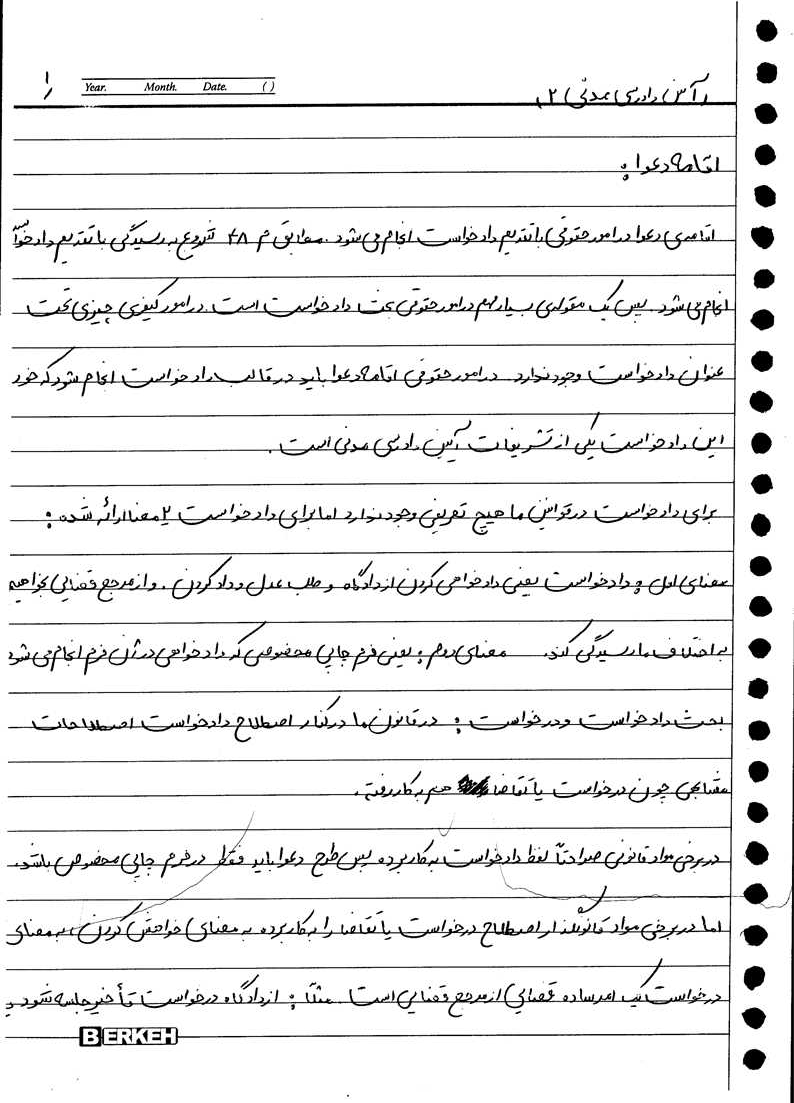 Year. Month. Date. ( )
۱
(آئین دادرسی مدنی ۲)
اقامه دعوا:
اقامه‌ی دعوا در امور حقوقی با تقدیم دادخواست انجام می شود. مطابق م ۴۸ شروع به رسیدگی با تقدیم دادخواست
انجام می شود. پس یک مقوله‌ی بسیار مهم در امور حقوقی بحث دادخواست است. در امور کیفری چیزی تحت
عنوان دادخواست وجود ندارد. در امور حقوقی اقامه دعوا باید در قالب دادخواست انجام شود که خود
این دادخواست یکی از تشریفات آیین دادرسی مدنی است.
برای دادخواست در قوانین ما هیچ تعریفی وجود ندارد اما برای دادخواست ۲ معنا ارائه شده:
معنای اول: دادخواست یعنی دادخواهی کردن از دادگاه و طلب عدل و داد کردن. و از مرجع قضایی بخواهیم
به اختلاف ما رسیدگی کند. معنای دوم: یعنی فرم چاپی مخصوصی که دادخواهی در آن فرم انجام می شود
بحث دادخواست و درخواست: در قانون ما در کنار اصطلاح دادخواست اصطلاحات
مشابهی چون درخواست یا تقاضا هم به کار رفته.
در برخی مواد قانونی صراحتاً لفظ دادخواست به کار برده پس طرح دعوا باید فقط در فرم چاپی مخصوص باشد.
اما در برخی مواد قانونگذار اصطلاح درخواست یا تقاضا را به کار برده به معنای (خواهش کردن)، به معنای
درخواست یک امر ساده قضایی) از مرجع قضایی است. مثلاً: از دادگاه درخواست تأخیر جلسه شود
BERKEH